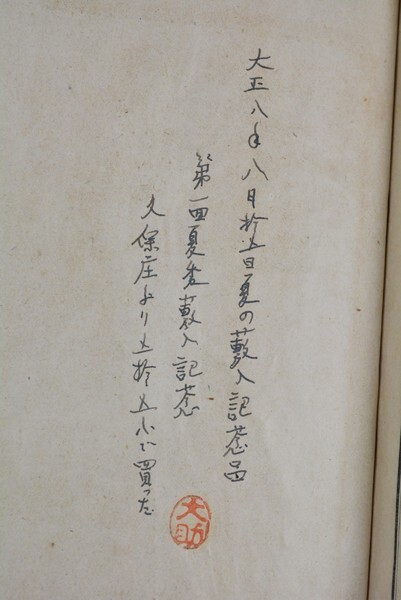 大正八年八月拾五日夏の藪入記念品
第一回夏季藪入記念
久保庄より五拾五で買った
文助